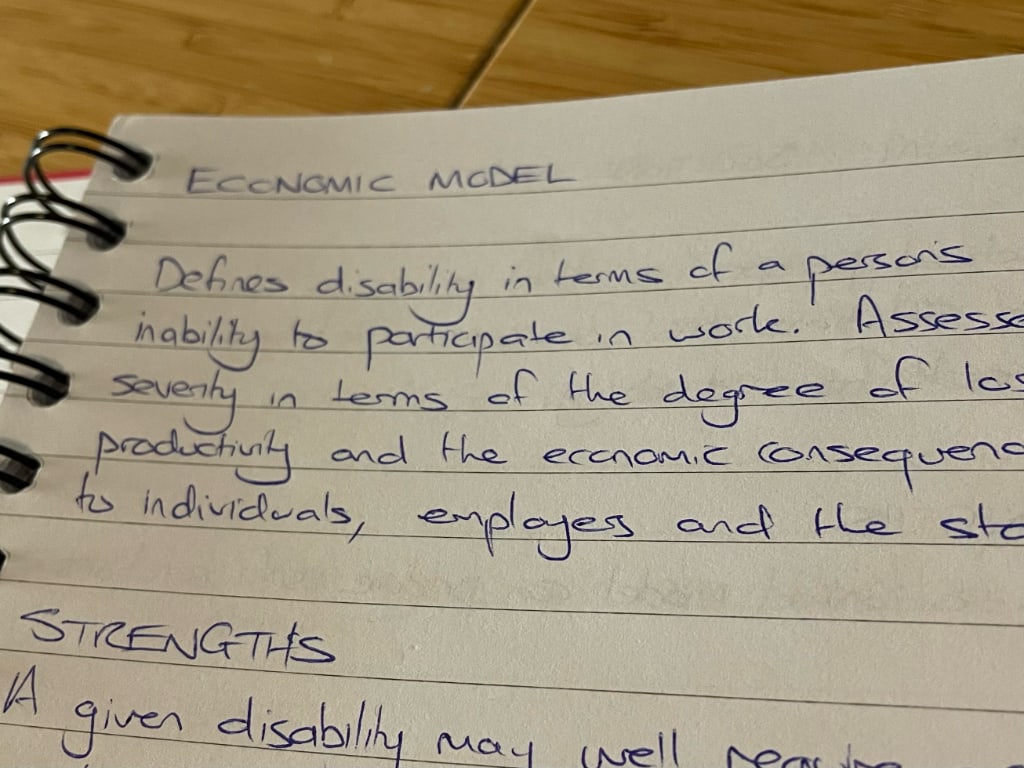 ECONOMIC MODEL
Defines disability in terms of a person's
inability to participate in work. Assesse
severity in terms of the degree of los
productivity and the economic consequenc
to individuals, employess and the sta
STRENGTHS
A given disability may well